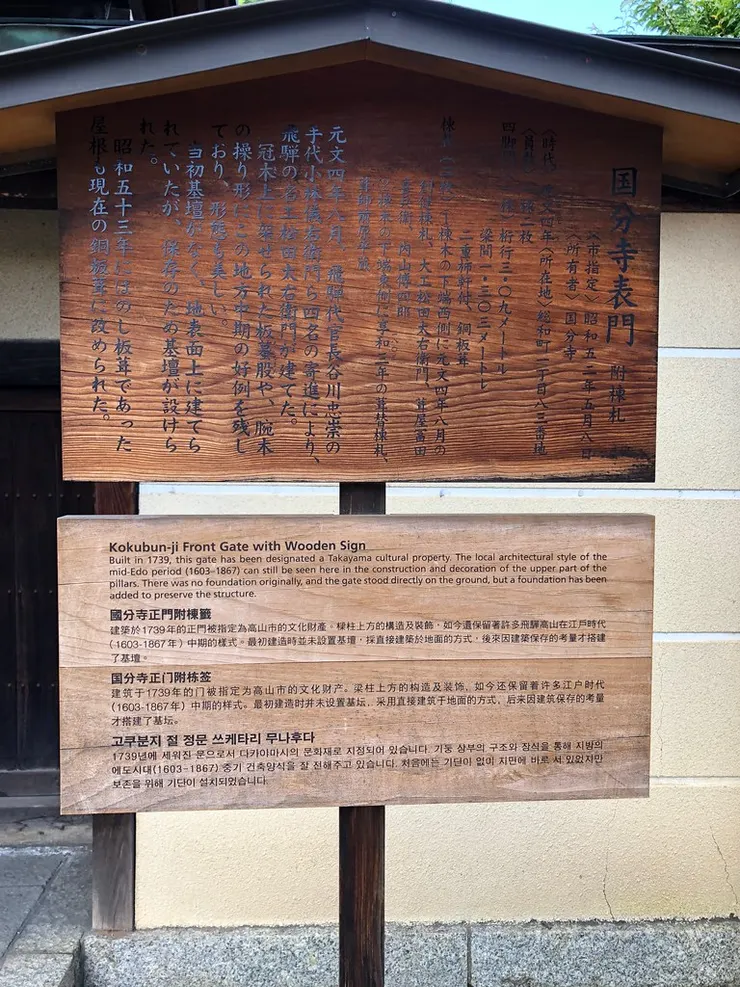 国分寺表門 附棟札
〈市指定〉昭和五二年五月八日
〈所有者〉国分寺
〈時代〉元文四年〈所在地〉総和町一丁目八三番地
〈員数〉 枚
四脚門 桁行三・〇九メートル
梁間一・三〇三メートル
二重杮軒付、銅板葺
棟木の下端西側に元文四年八月の
棟札、大工松田太右衛門、葺屋富田
内山博四郎
下端東側に享和三年の葺替棟札、
元文四年八月、飛騨代官長谷川忠崇の
手代小林儀右衛門ら四名の寄進により、
飛騨の名工松田太右衛門が建てた。
冠木上に架せられた板蟇股や、腕木
の操り形にこの地方中期の好例を残し
ており、形態も美しい。
当初基壇がなく、地表面上に建てら
れていたが、保存のため基壇が設けら
れた。
昭和五十三年にはのし板葺であった
屋根も現在の銅板葺に改められた。
Kokubun-ji Front Gate with Wooden Sign
Built in 1739, this gate has been designated a Takayama cultural property. The local architectural style of the
mid-Edo period (1603-1867) can still be seen here in the construction and decoration of the upper part of the
pillars. There was no foundation originally, and the gate stood directly on the ground, but a foundation has been
added to preserve the structure.
國分寺正門附棟籤
建築於1739年的正門被指定為高山市的文化財產。樑柱上方的構造及裝飾，如今還保留著許多飛驒高山在江戶時代
（1603-1867年）中期的樣式。最初建造時並未設置基壇，採直接建築於地面的方式，後來因建築保存的考量才搭建
了基壇。
国分寺正门附栋签
建筑于1739年的门被指定为高山市的文化财产。梁柱上方的构造及装饰，如今还保留着许多江户时代
（1603-1867年）中期的样式。最初建造时并未设置基坛，采用直接建筑于地面的方式，后来因建筑保存的考量
才搭建了基坛。
고쿠분지 절 정문 쓰케타리 무나후다
1739년에 세워진 문으로서 다카야마시의 문화재로 지정되어 있습니다. 기둥 상부의 구조와 장식을 통해 지방의
에도시대(1603-1867) 중기 건축양식을 잘 전해주고 있습니다. 처음에는 기단이 없이 지면에 바로 서 있었지만
보존을 위해 기단이 설치되었습니다.